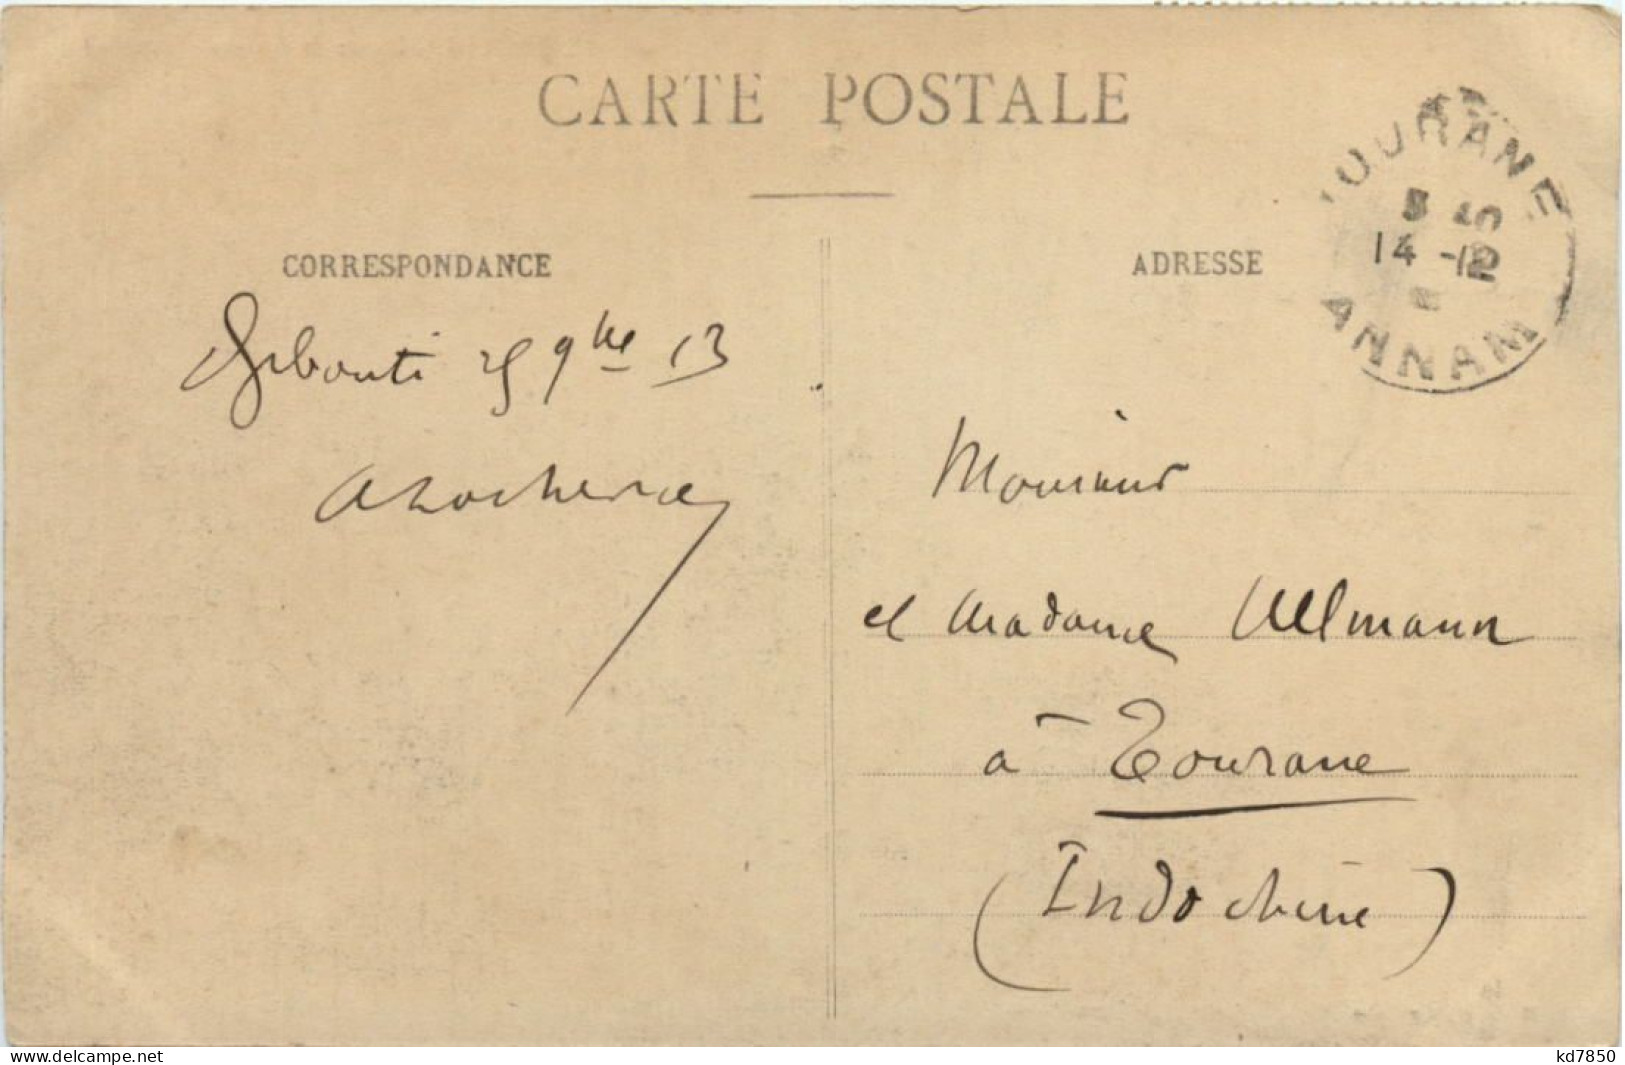 CARTE POSTALE
CORRESPONDANCE
Djibouti 25 9bre 13
ADRESSE
TOURANE
14 -12
ANNAM
Monsieur
et Madame Ullmann
à Tourane
(Indochine)
delcampe.net
kd7850